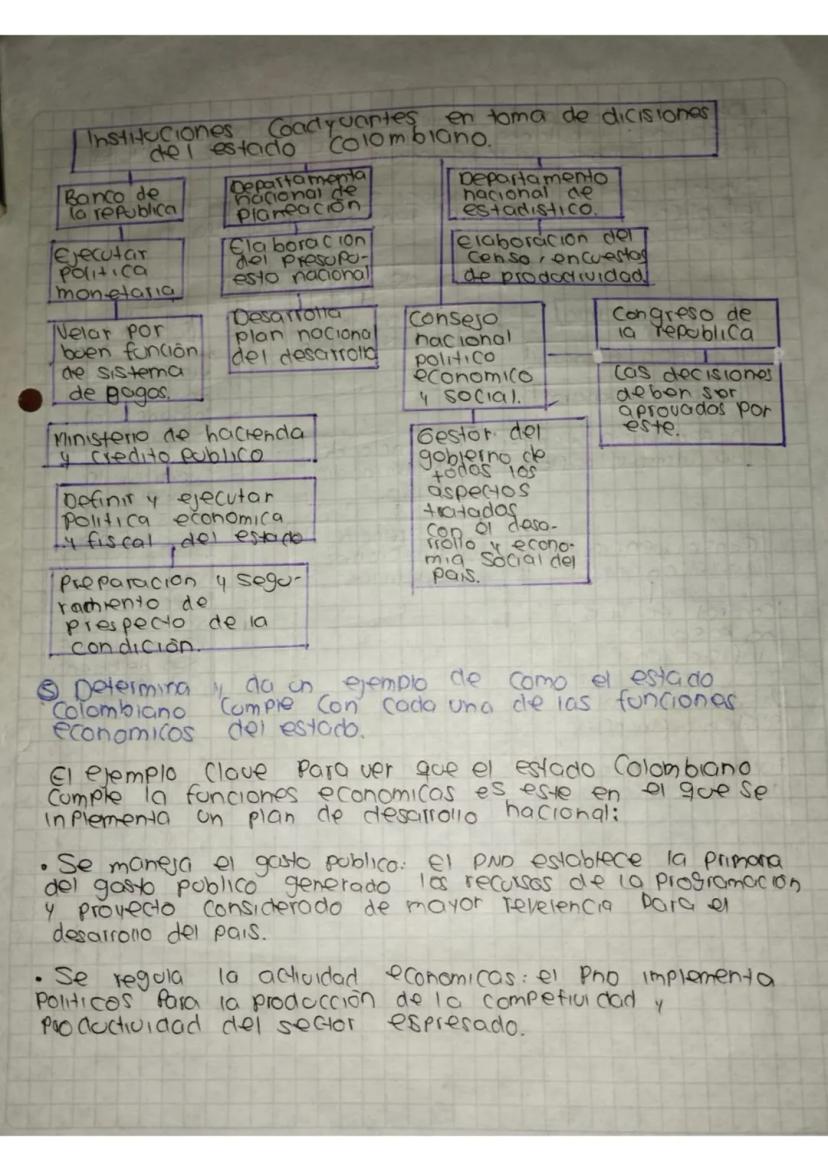 Instituciones Coadyuantes en toma de dicisiones
del estado Colombiano.
Banco de
la republica
Ejecutar
politica
monetaria
Velar por
buen función
de sistema
de pagos.
Ministerio de hacienda
y credito publico
Definir y ejecutar
politica economica
y fiscal del estado
Preparacion y segu-
ramiento de
prespecto de la
condición.
Departamento
nacional de
planeación
Elaboracion
del presupu-
esto nacional
Desarrolla
plan nacional
del desarrollo
Departamento
nacional de
estadistico.
elaboracion del
censo, encuestas
de productividad
Consejo
nacional
politico
economico
y social.
Gestor del
gobierno de
todos los
aspectos
tratados
con el desa-
rrollo y econo-
mia social del
pais.
Congreso de
la republica
Las decisiones
deben ser
aprovados por
este.
⑤ Determina y da un ejemplo de como el estado
Colombiano cumple con cada una de las funciones
economicos del estado.
El ejemplo clave para ver que el estado Colombiano
cumple la funciones economicas es este en el que se
inplementa un plan de desarrollo nacional:
• Se maneja el gasto publico: el PND establece la primara
del gasto publico generado los recursos de la programacion
y proyecto considerado de mayor revelencia para el
desarrollo del pais.
• Se regula la actividad economicas: el PND implementa
politicos para la producción de la competividad y
productividad del sector espresado.